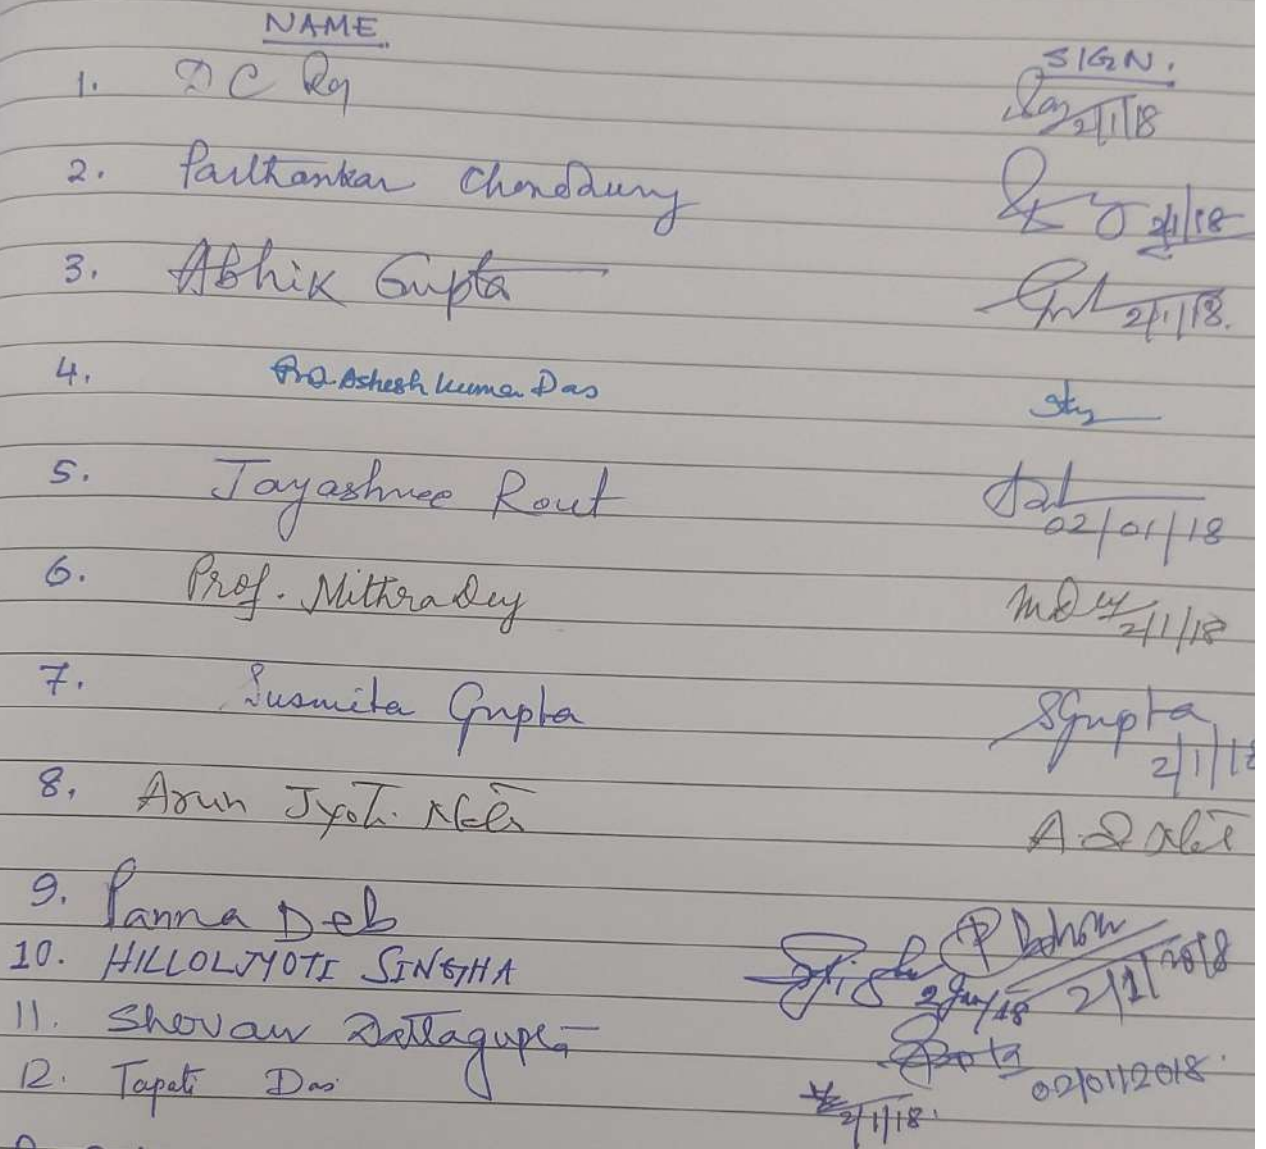 NAME SIGN.
1. D C Ray 2/1/18
2. Parthankar Choudhury 2/1/18
3. Abhik Gupta 2/1/18.
4. Ashesh Kumar Das
5. Jayashree Rout 02/01/18
6. Prof. Mithra Dey MDey 2/1/18
7. Susmita Gupta SGupta 2/1/18
8. Arun Jyoti Nath
9. Panna Deb 2/1/2018
10. HILLOLJYOTI SINGHA 2 Jan/18
11. Shovan Dattagupta 02/01/2018.
12. Tapati Das 2/1/18.